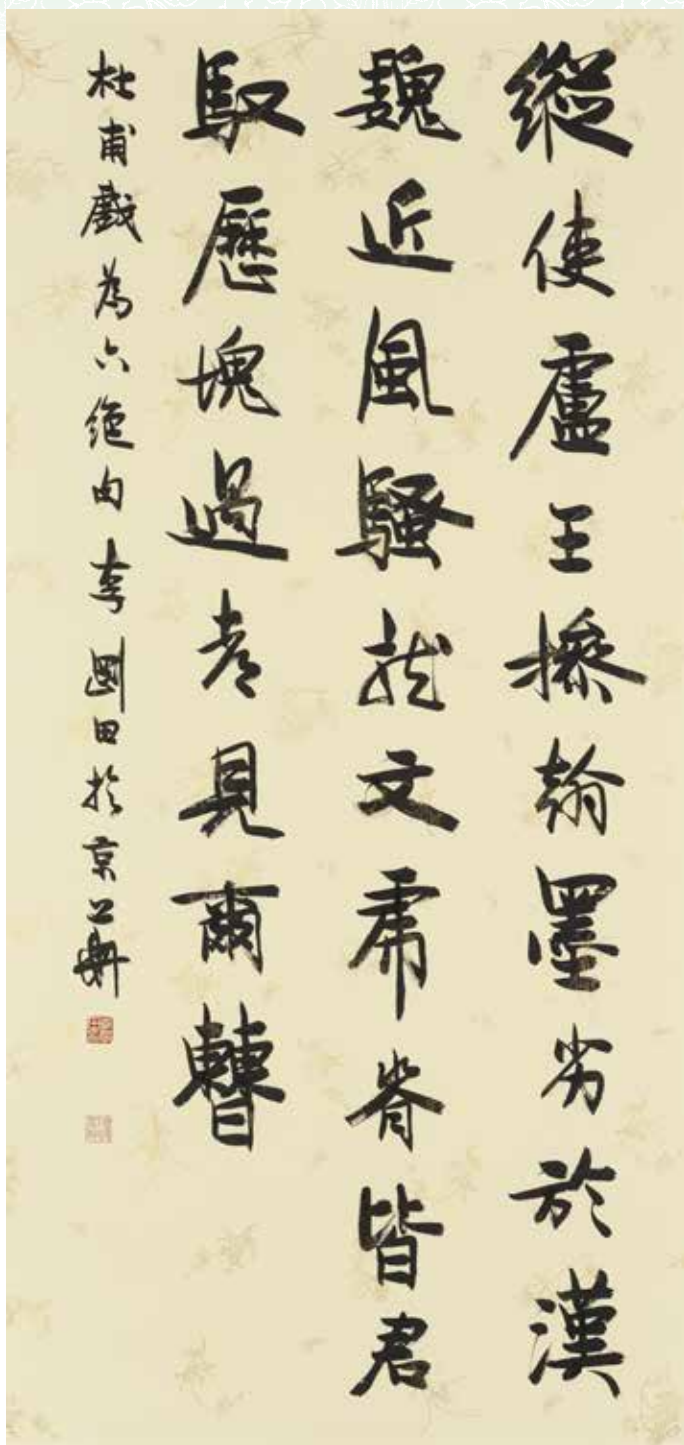 縱使盧王操翰墨劣於漢
魏近風騷龍文虎脊皆君
馭歷塊過都見爾曹
杜甫戲為六絕句李剛田於京